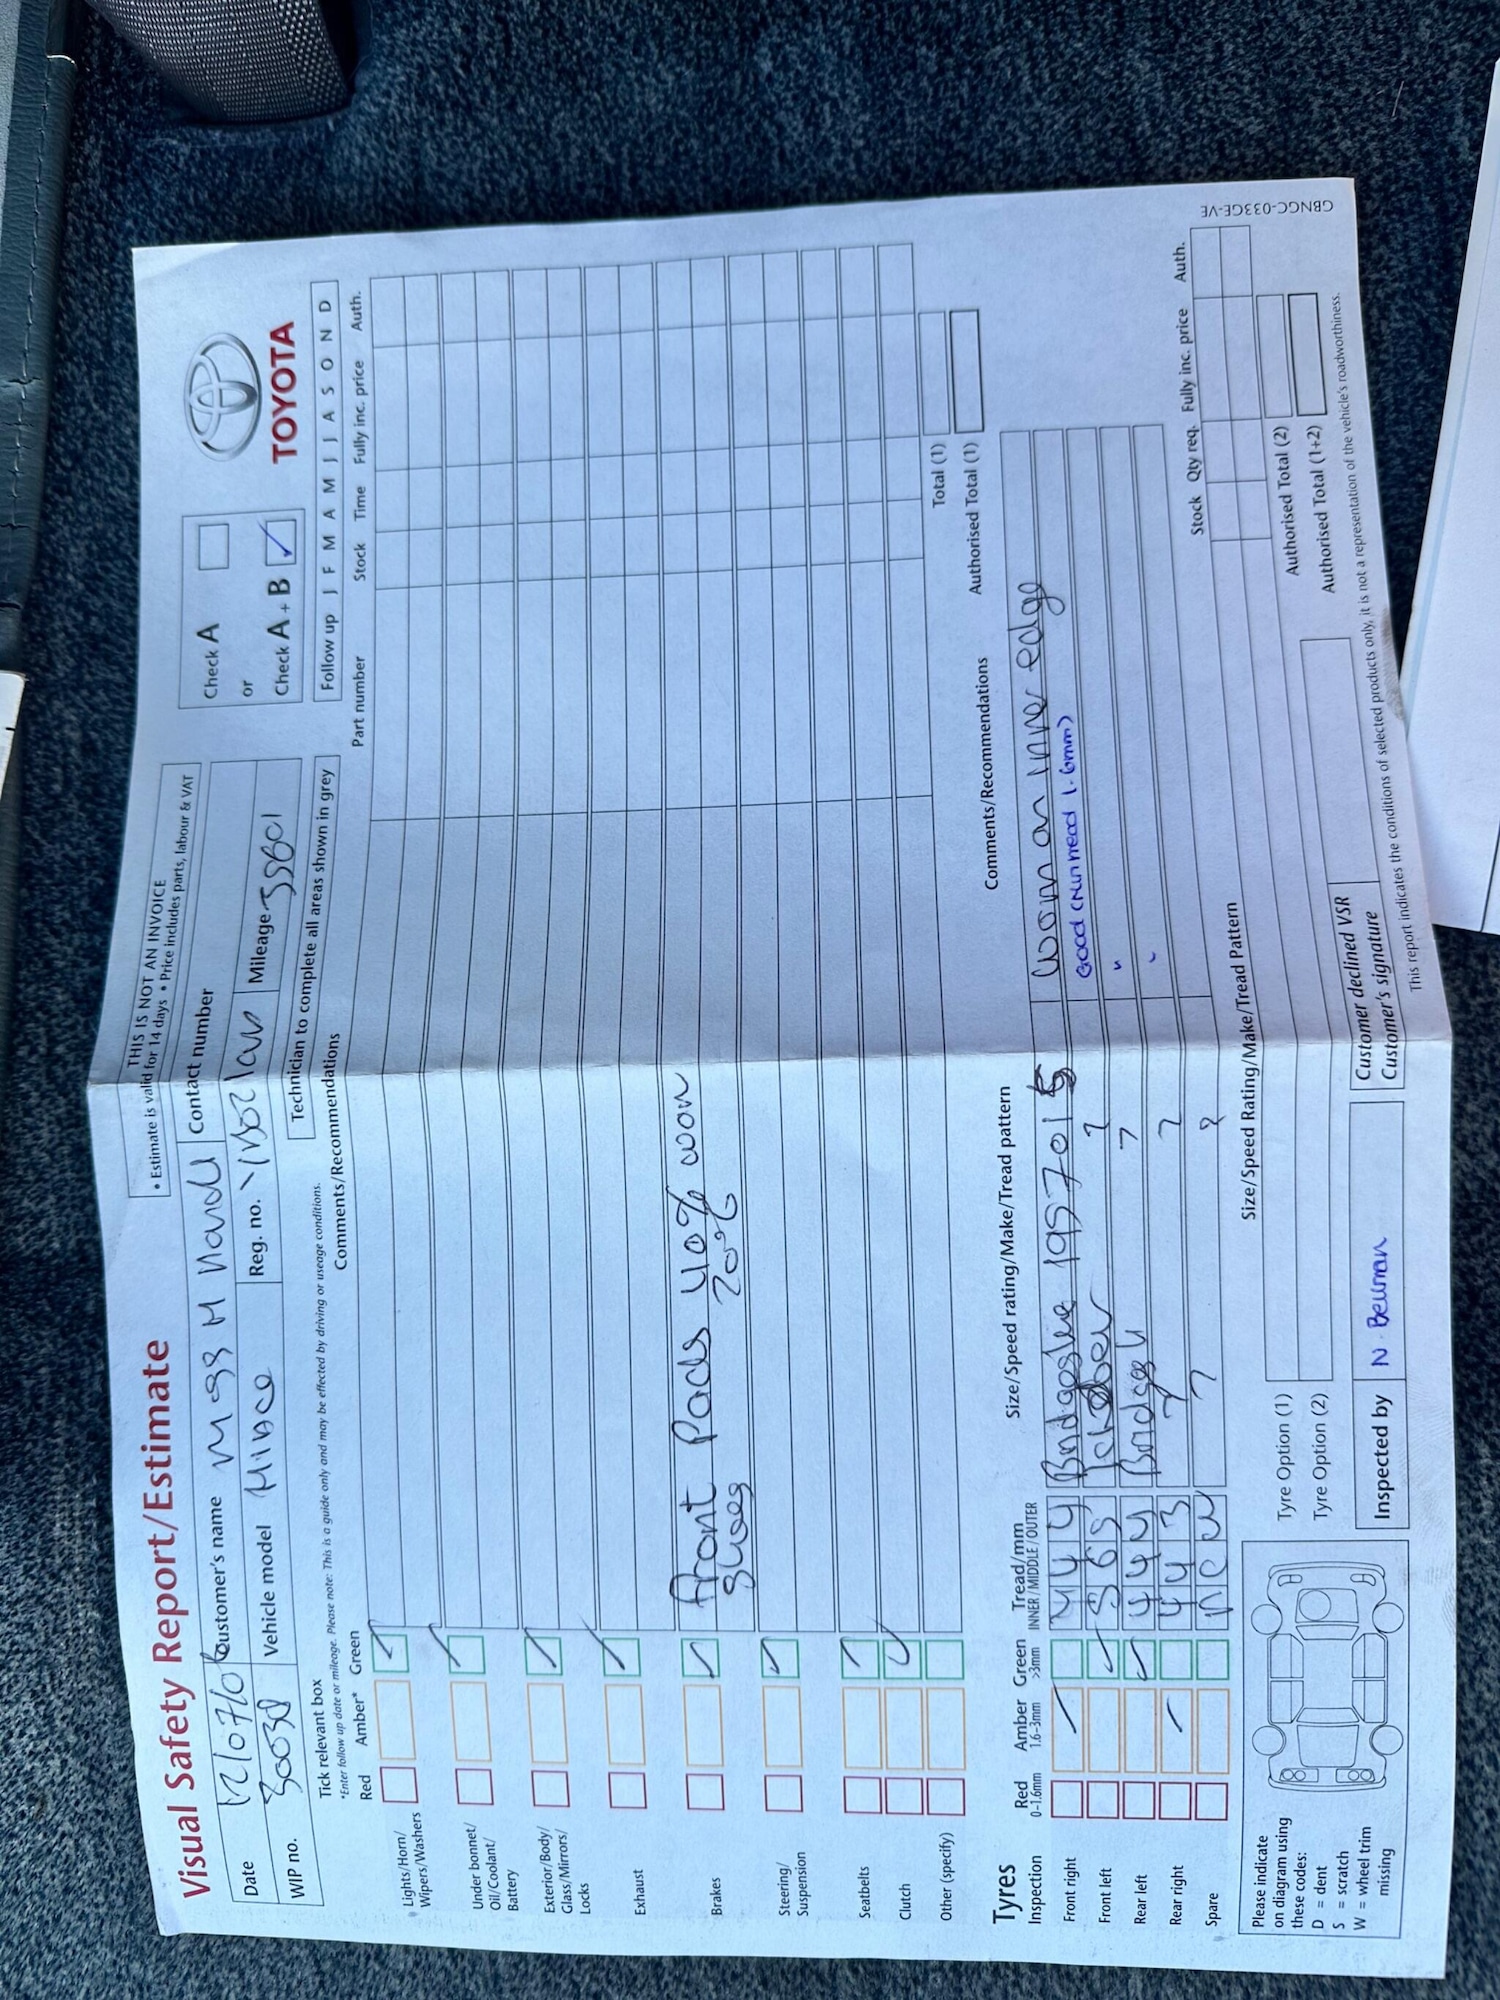 Visual Safety Report/Estimate
THIS IS NOT AN INVOICE
• Estimate is valid for 14 days • Price includes parts, labour & VAT
Check A
or
Check A + B ✓
TOYOTA
Date
Customer's name
Contact number
WIP no.
Vehicle model HIACE
Reg. no.
Mileage
Follow up J F M A M J J A S O N D
Tick relevant box
*Enter follow up date or mileage. Please note: This is a guide only and may be effected by driving or useage conditions.
Technician to complete all areas shown in grey
Red Amber* Green
Comments/Recommendations
Part number Stock Time Fully inc. price Auth.
Lights/Horn/
Wipers/Washers
Under bonnet/
Oil/Coolant/
Battery
Exterior/Body/
Glass/Mirrors/
Locks
Exhaust
Brakes
Front Pads 40% worn
Shoes 20%
Steering/
Suspension
Seatbelts
Clutch
Other (specify)
Total (1)
Authorised Total (1)
Tyres
Inspection
Red
0-1.6mm
Amber
1.6-3mm
Green
>3mm
Tread/mm
INNER / MIDDLE / OUTER
Size/Speed rating/Make/Tread pattern
Comments/Recommendations
Front right 4 4 4 195 70 15 worn on inner edge
Front left 5 6 5 Good (Min tread 1.6mm)
Rear left 4 4 4 "
Rear right 4 4 3 "
Spare new
Size/Speed Rating/Make/Tread Pattern
Stock Qty req. Fully inc. price Auth.
Tyre Option (1)
Tyre Option (2)
Authorised Total (2)
Authorised Total (1+2)
Please indicate
on diagram using
these codes:
D = dent
S = scratch
W = wheel trim
missing
Inspected by N. Bellman
Customer declined VSR
Customer's signature
This report indicates the conditions of selected products only, it is not a representation of the vehicle's roadworthiness.
GBNGC-033GE-VE